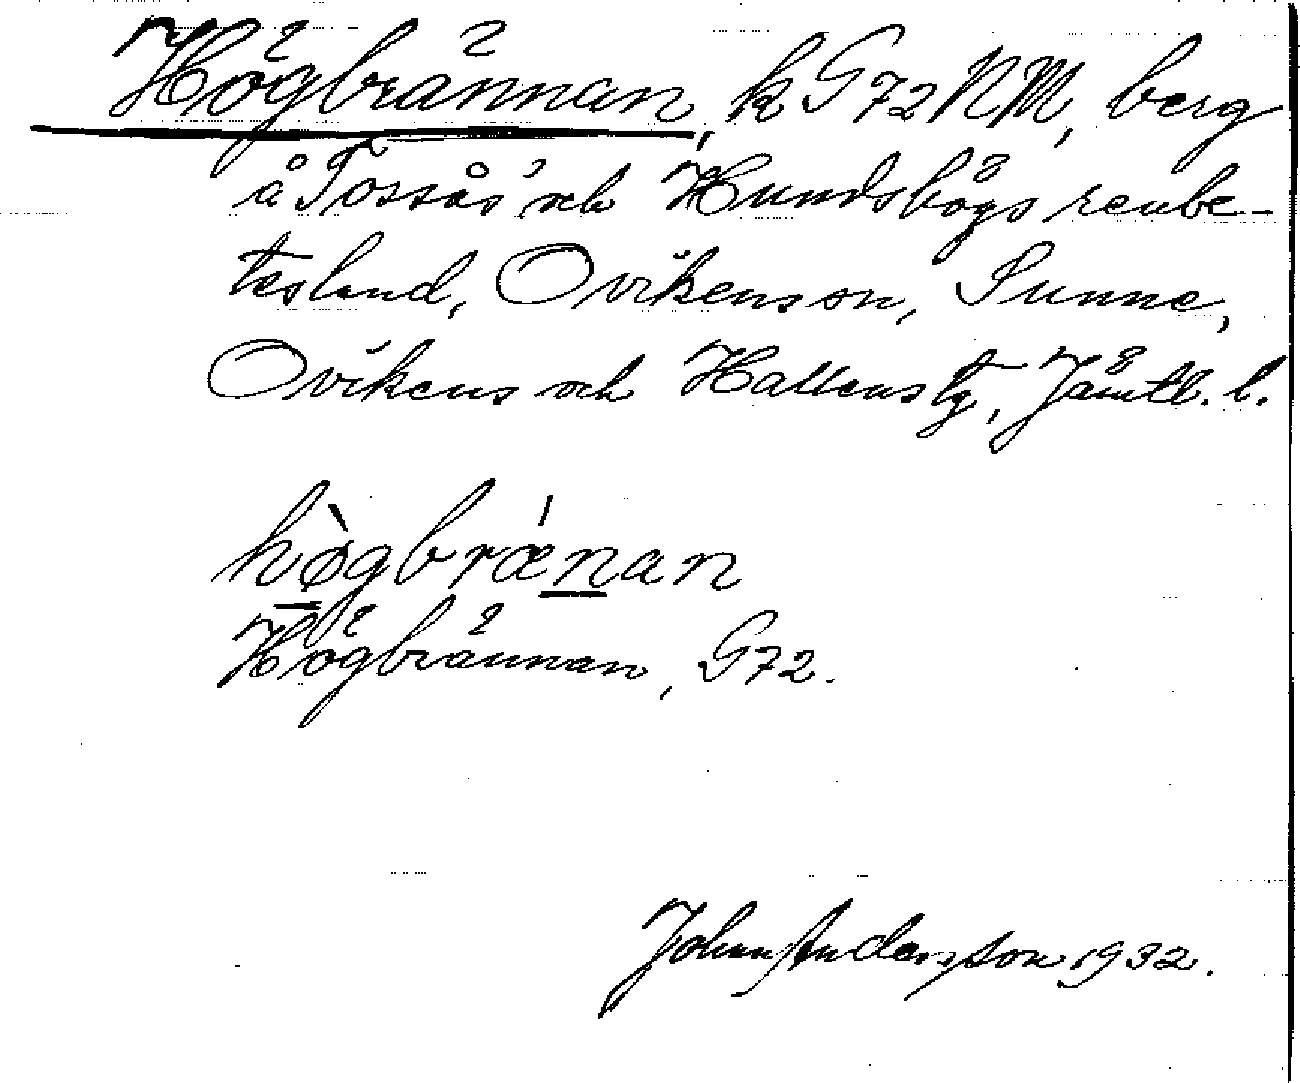 Högbrännan, k G72NM, berg
å Tossås' och Hundsbögs renbe-
tesland, Ovikens sn, Sunne,
Ovikens och Hallens tg, Jämtl. l.
hø̀gbrǽnan
Högbrännan, G72.
Johan Andersson 1932.